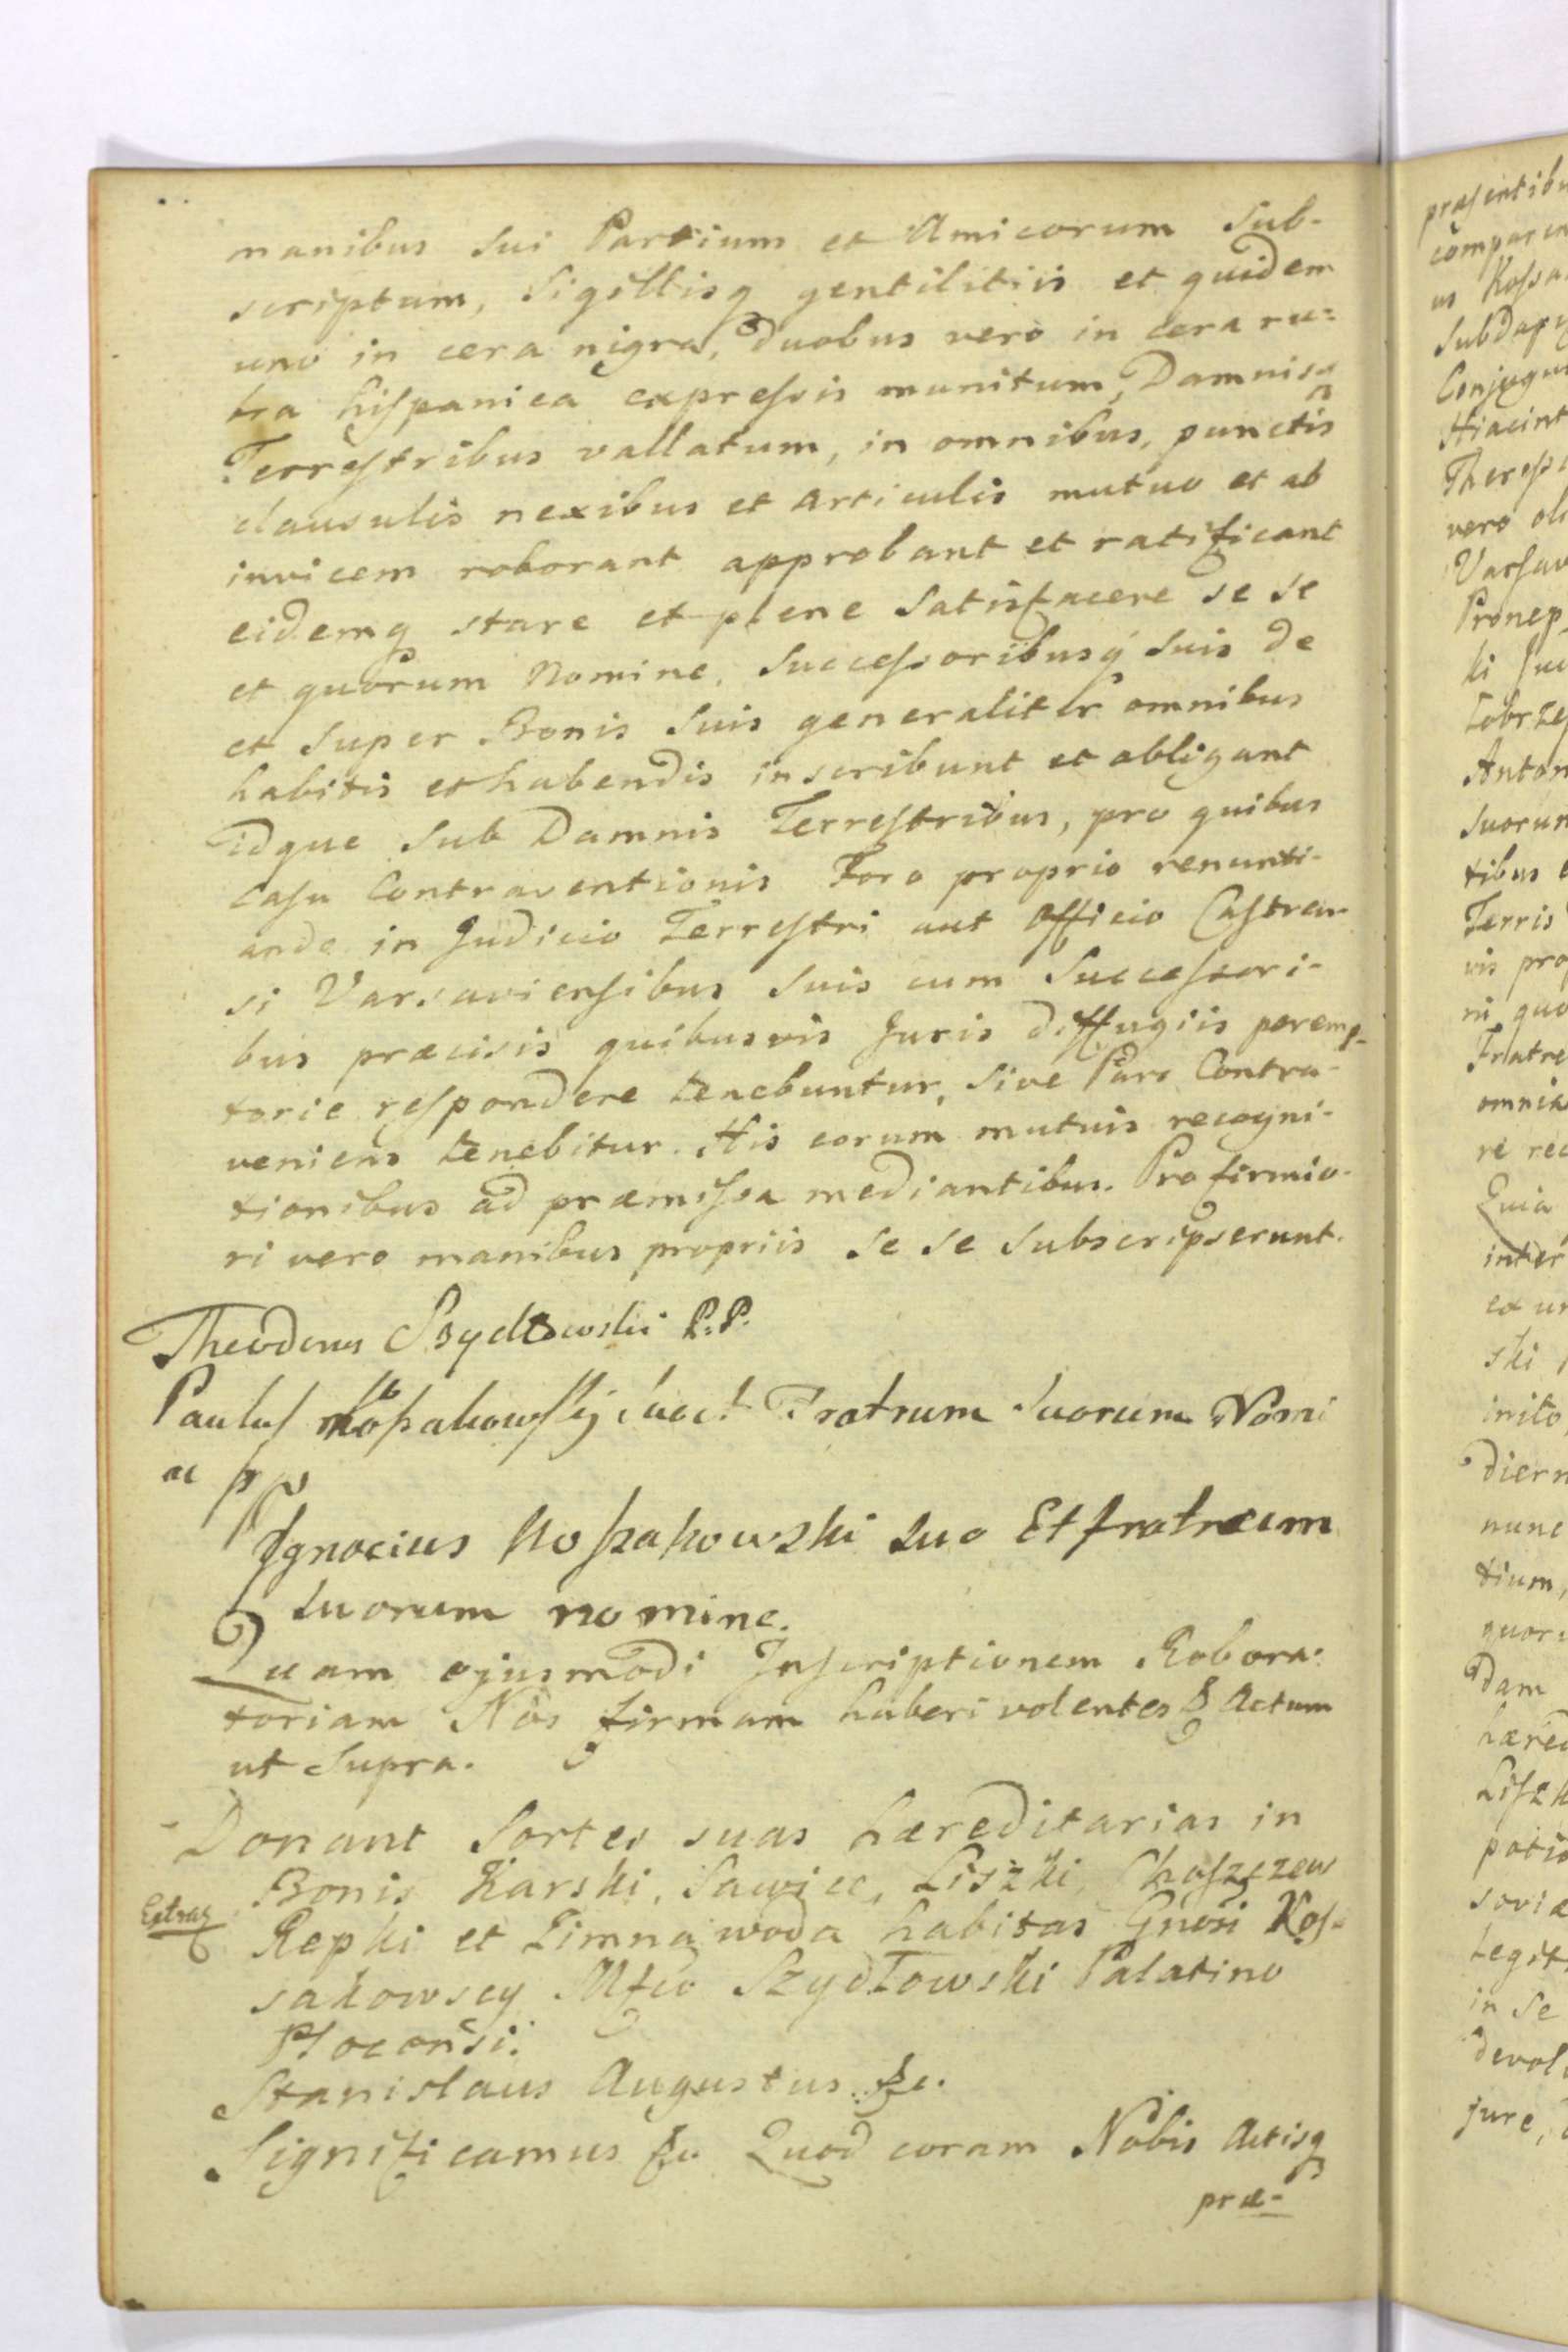 manibus Sui Partium et Amicorum Sub-
scriptum, Sigillisq gentilitiis et quidem
uno in cera nigra, duobus vero in cera ru=
bra hiſpanica expreſsis munitum, Damnisq
Terreſtribus vallatum, in omnibus, punctis
clausulis nexibus et articulis mutuo et ab
invicem roborant approbant et ratificant
eidemq stare et plene Satisfacere se se
et quorum Nomine, Succeſsoribusq Suis de
et Super Bonis Suis generaliter omnibus
habitis et habendis inscribunt et obligant
idque Sub Damnis Terreſtribus, pro quibus
Casu Contraventionis Foro proprio renunti-
ando in Judicio Terreſtri aut Officio Caſtren-
si Varsavienſibus Suis cum Succeſsori-
bus præcisis quibusvis Juris diffugiis peremp-
torie reſpondere tenebuntur, Sive Pars Contra-
veniens tenebitur. His eorum mutuis recogni-
tionibus ad præmiſsa mediantibus. Pro firmio-
ri vero manibus propriis Se Se Subscripserunt.
Theodorus Szydłowski P.P.
Paulus Koſsakowſkij Fratrum Suorum Nomi
Ignacius Koſsakowski Suo Et fratrum
Suorum nomine.
Quam ejusmodi Inſcriptionem Robora-
toriam Nos firmam haberi volentes & Actum
ut Supra.
Donant Sortes suas hæreditarias in
Bonis Karski, Sawice, Liszki, Choſzczew
Extrax
Repki et Zimna woda habitas Gnosi Koſ-
sakowscy Mfco Szydłowski Palatino
Plocensi.
Stanislaus Augustus &c.
Significamus &c Quod coram Nobis Actisq
præ-
præſentibu
comparen
us Koſsa
Subdapi
Conjugu
Hiacint
Thereſs
vero oli
Varſav
Pronep
ki Suo
Anton
Suorum
tibus e
Terris
vis pro
ni quo
Fratre
omnia
re rec
Quia
inter
ex un
ski
inito,
diern
nunc
tium,
quoru
dam
hæred
Liſzk
potio
soviæ
Legit
in Se
devol
jure,